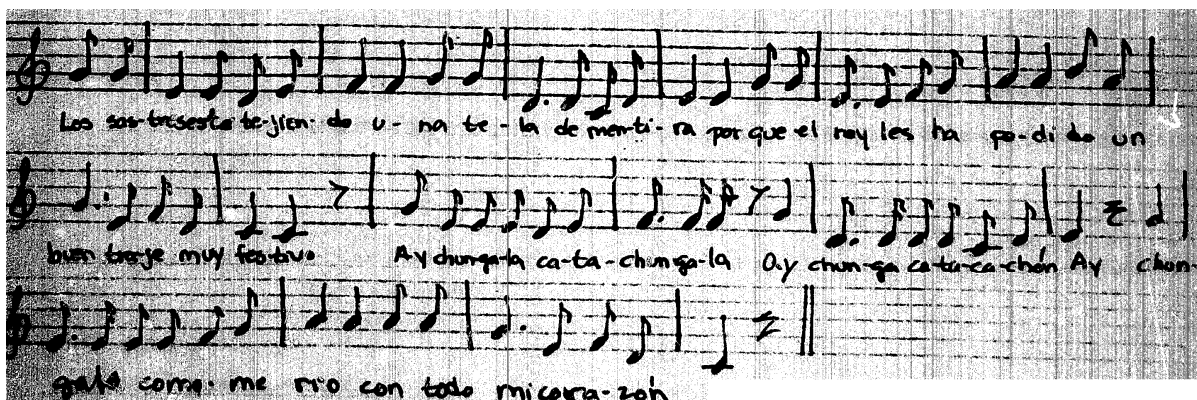 Los sas-tresesta te-jien-do u-na te-la de men-ti-ra por que el rey les ha pe-di do un
buen tra-je muy fes-tivo Ay chun-ga-la ca-ta-chun ga-la Ay chun-ga ca-ta-ca-chón Ay chun-
gala como me rio con todo mi cora-zón